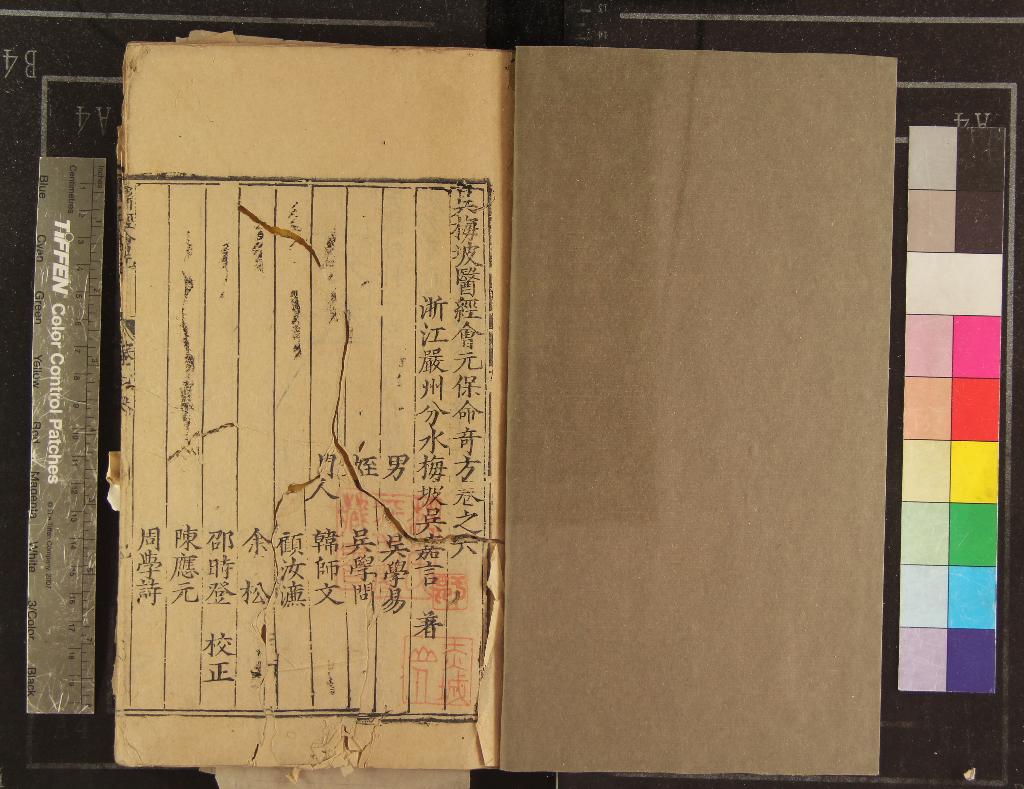 吳梅坡醫經會元保命竒方卷之六
浙江嚴州分水梅坡吳嘉言 著
男 吳學易
姪 吳學問
門人 韓師文
顧汝濂
余松
邵時登 校正
陳應元
周學詩
B4
A4
A4
TIFFEN Color Control Patches
© The Tiffen Company, 2007
Centimetres
Inches
Blue
Cyan
Green
Yellow
Red
Magenta
White
3/Color
Black